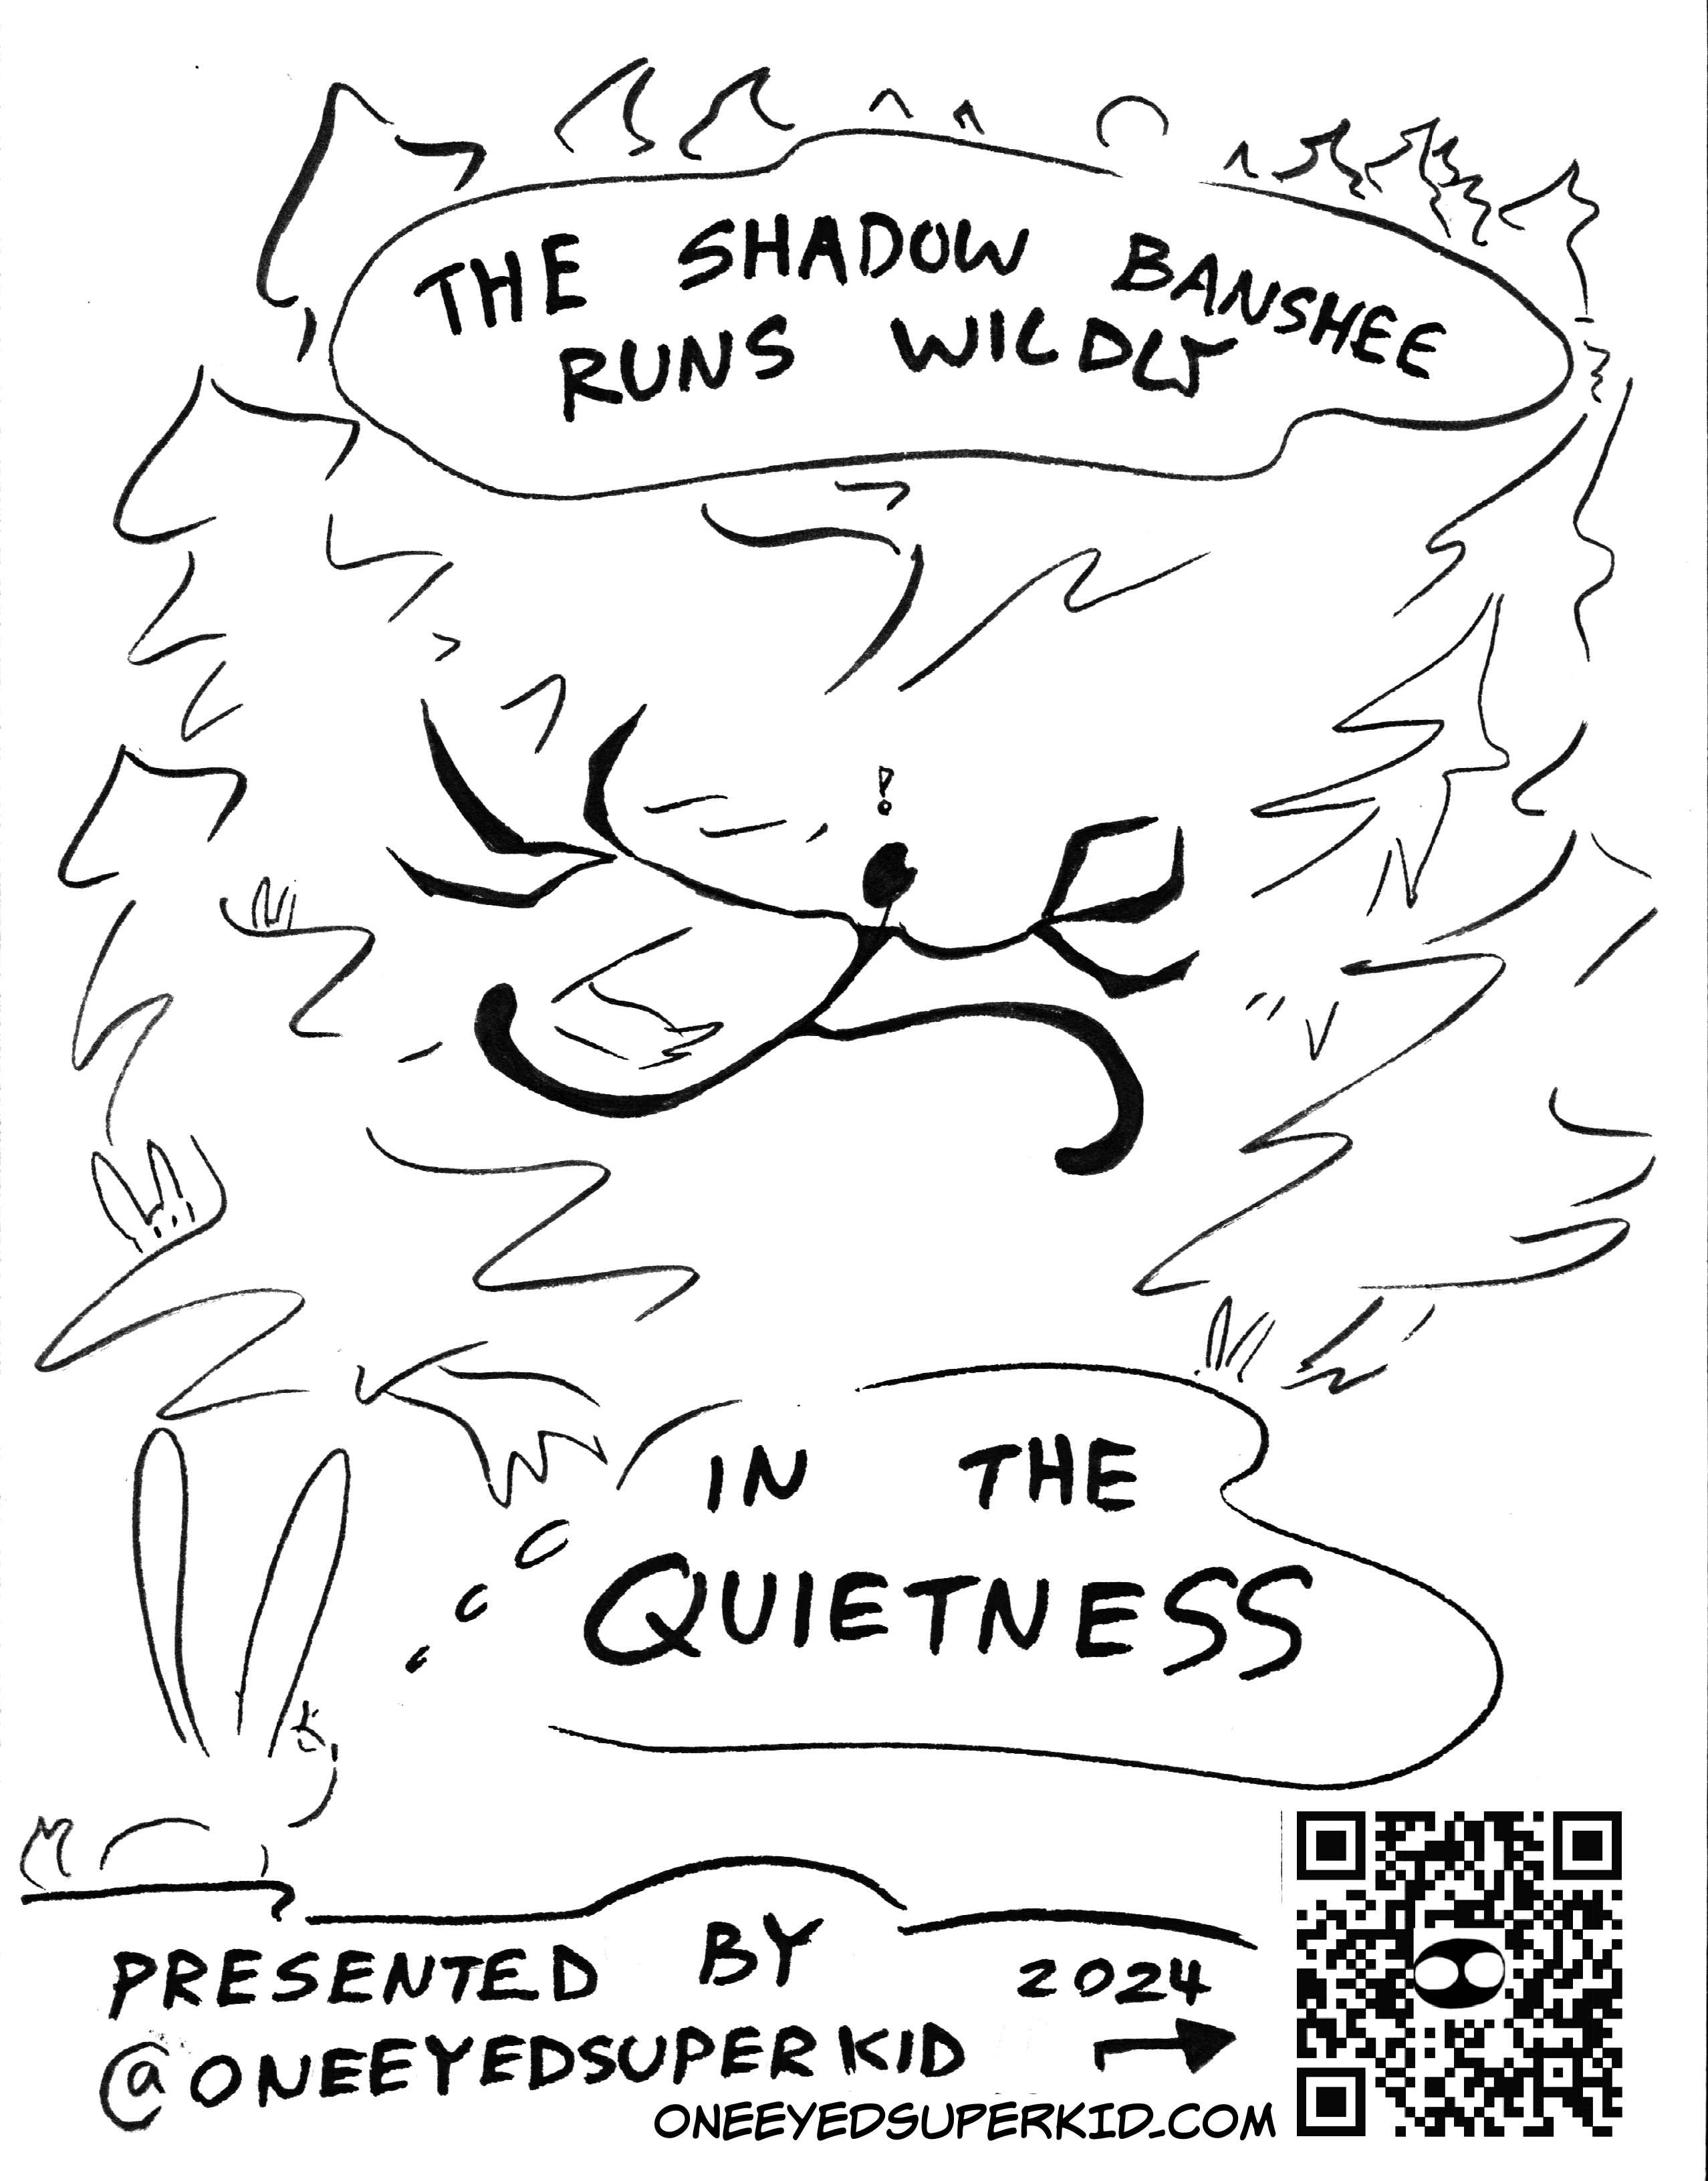 THE SHADOW BANSHEE
RUNS WILDLY
!
IN THE
QUIETNESS
PRESENTED BY
2024
@ONEEYEDSUPERKID
ONEEYEDSUPERKID.COM